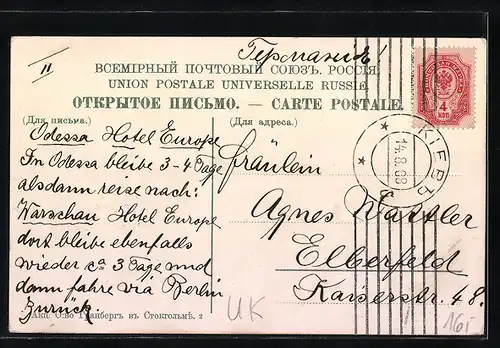 Германія!
II
ВСЕМІРНЫЙ ПОЧТОВЫЙ СОЮЗЪ. РОССІЯ.
UNION POSTALE UNIVERSELLE RUSSIE.
ОТКРЫТОЕ ПИСЬМО. — CARTE POSTALE.
4
КОП
КІЕВЪ
14.8.08
(Для письма.)
(Для адреса.)
Odessa Hotel Europe
In Odessa bleibe 3-4 Tage
alsdann reise nach:
Warschau Hotel Europe
dort bleibe ebenfalls
wieder ca 3 Tage und
dann fahre via Berlin
zurück.
Fräulein
Agnes Wattler
Elberfeld
Kaiserstr. 48.
Акц. О-во Гранбергъ въ Стокгольмѣ. 2
UK
16,-